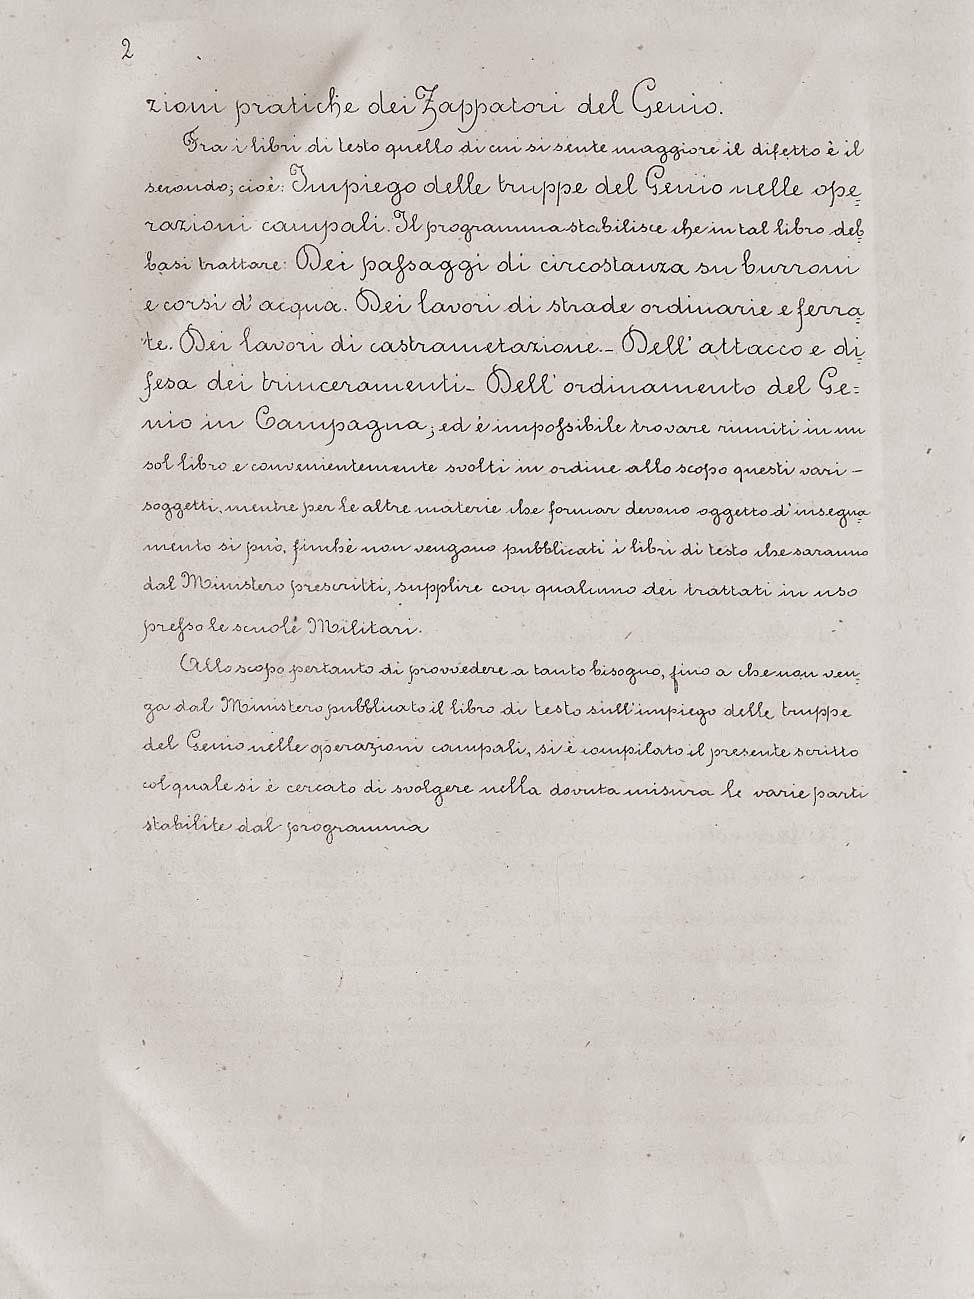 2
zioni pratiche dei Zappatori del Genio.
Fra i libri di testo quello di cui si sente maggiore il difetto è il
secondo; cioè: Impiego delle truppe del Genio nelle ope=
razioni campali. Il programma stabilisce che in tal libro deb=
basi trattare: Dei passaggi di circostanza su burroni
e corsi d'acqua. Dei lavori di strade ordinarie e ferra=
te. Dei lavori di castrametazione._ Dell'attacco e di=
fesa dei trinceramenti_ Dell'ordinamento del Ge=
nio in Campagna; ed è impossibile trovare riuniti in un
sol libro e convenientemente svolti in ordine allo scopo questi vari –
soggetti, mentre per le altre materie che formar devono oggetto d'insegna=
mento si può, finchè non vengano pubblicati i libri di testo che saranno
dal Ministero prescritti, supplire con qualcuno dei trattati in uso
presso le scuole Militari.
Allo scopo pertanto di provvedere a tanto bisogno, fino a che non ven=
ga dal Ministero pubblicato il libro di testo sull'impiego delle truppe
del Genio nelle operazioni campali, si è compilato il presente scritto
col quale si è cercato di svolgere nella dovuta misura le varie parti
stabilite dal programma